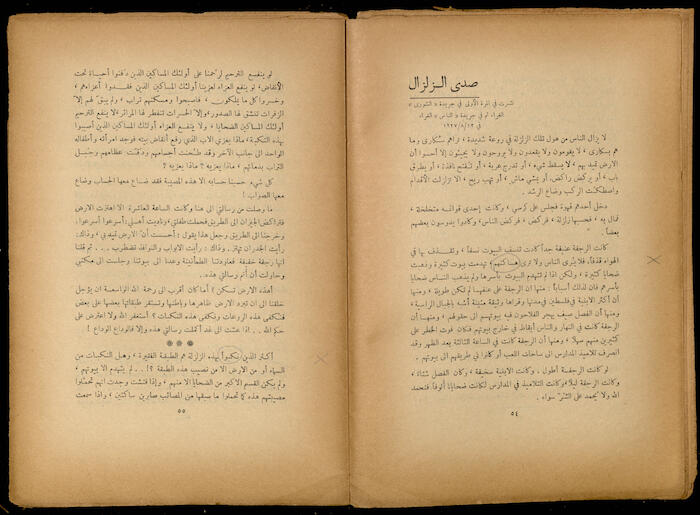 صدى الزلزال
نشرت في المرة الأولى في جريدة « الشورى »
الغراء ثم في جريدة « الناس » الغراء
في ١٣/٨/١٩٢٧
لا يزال الناس من هول تلك الزلزلة في روعة شديدة ، تراهم سكارى وما
هم بسكارى ، لا يقومون ولا يقعدون ولا يروحون ولا يجيئون إلا أحسوا أن
الارض تميد بهم ، لا يسقط شيء ، أو تمر عربة ، أو تنفتح نافذة ، أو يطرق
باب ، أو يركض راكض، أو يمشي ماش ، أو تهب ريح ، الا تزلزلت الأقدام
واصطكت الركب وضاع الرشد .
دخل أحدهم قهوة فجلس على كرسي ، وكانت إحدى قوائمه متخلخلة ،
فمال به ، فحسبها زلزلة ، فركض ، فركض الناس، وكادوا يدوسون بعضهم
بعضا .
كانت الرجفة عنيفة جداً كادت تنسف البيوت نسفاً ، وتقذف بها في
الهواء قذفاً، فلا يُرى الناس ولا تُرى مساكنهم، تهدمت بيوت كثيرة وذهبت
ضحايا كثيرة ، ولكن اذا لم تنهدم البيوت بأسرها ولم يذهب الناس ضحايا
بأسرهم فان لذلك أسباباً : منها ان الرجفة على عنفها لم تكن طويلة ، ومنها
أن أكثر الابنية في فلسطين في مدنها وقراها وثيقة متينة أشبه بالجبال الراسية،
ومنها أن الفصل صيف يهجر الفلاحون فيه بيوتهم الى حقولهم ، ومنها أن
الرجفة كانت في النهار والناس أيقاظ في خارج بيوتهم فكان فوت الخطر على
كثيرين منهم سهلا ، ومنها أن الرجفة كانت في الساعة الثالثة بعد الظهر وقد
انصرف تلاميذ المدارس الى ساحات اللعب أو كانوا في طريقهم الى بيوتهم .
لو كانت الرجفة أطول ، وكانت الابنية سخيفة ، وكان الفصل شتاءً ،
وكانت الرجفة ليلاً وكانت التلاميذ في المدارس لكانت ضحايانا أوفى. فنحمد
الله ولا يحمد على الشر سواه .
٥٤
لو ينفع الترحم لرحمنا على أولئك المساكين الذين دفنوا أحياءً تحت
الأنقاض، لو ينفع العزاء لعزينا أولئك المساكين الذين فقدوا أعزاءهم ،
وخسروا كل ما يملكون ، فاصبحوا ومسكنهم تراب ، ولم يبق لهم إلا
الزفرات تنشق لها الصدور، وإلا الحسرات تنفطر لها المرائر، لا ينفع الترحم
أولئك المساكين الضحايا ، ولا ينفع العزاء أولئك المساكين الذين أصيبوا
بهذه النكبة، ماذا يعزي الاب الذي رفع أنقاض بيته فوجد امرأته وأطفاله
الواحد الى جانب الآخر وقد طحنت أجسامهم ودقت عظامهم وجُبل
التراب بدمائهم ، ماذا يعزيه ؟ ماذا يعزيه ؟
كل شيء حسبنا حسابه الا هذه المصيبة فقد ضاع معها الحساب وضاع
معها الصواب !
ما وصلت من رسالتي الى هنا وكانت الساعة العاشرة إلا اهتزت الارض
فتراكض الجيران الى الطريق فحملت طفلتي، وناديت أهلي: أسرعوا أسرعوا.
وخرجنا الى الطريق وجعل هذا يقول : أحسست أن الارض تميد بي ، وذاك :
رأيت الجدران تهتز . وذاك : رأيت الابواب والنوافذ تضطرب... ثم قلنا
انها رجفة خفيفة فعاودتنا الطمأنينة وعدنا الى بيوتنا وجلست الى مكتبي
وحاولت أن أتم رسالتي هذه.
أهذه الارض نسكن ! أما كان أقرب الى رحمة الله الواسعة ان يؤجل
خلقنا الى ان تبرد الارض ظاهرها وباطنها وتستقر طبقاتها بعضها على بعض
فنكفى هذه الروعات ونكفى هذه النكبات ؟ أستغفر الله ولا اعتراض على
حكم الله . . اذا عشت الى غد أكملت رسالتي هذه وإلا فالوداع الوداع !
* * *
أكثر الذين نُكبوا بهذه الزلزلة هم الطبقة الفقيرة ، وهل النكبات من
السماء أو من الارض الا من نصيب هذه الطبقة ؟ ! . . لم ينهدم الا بيوتهم ،
ولم يكن القسم الاكبر من الضحايا الا منهم ، واذا فتشت وجدت انهم تحملوا
مصيبتهم هذه كما تحملوا ما سبقها من المصائب صابرين ساكتين ، واذا سمعت
٥٥